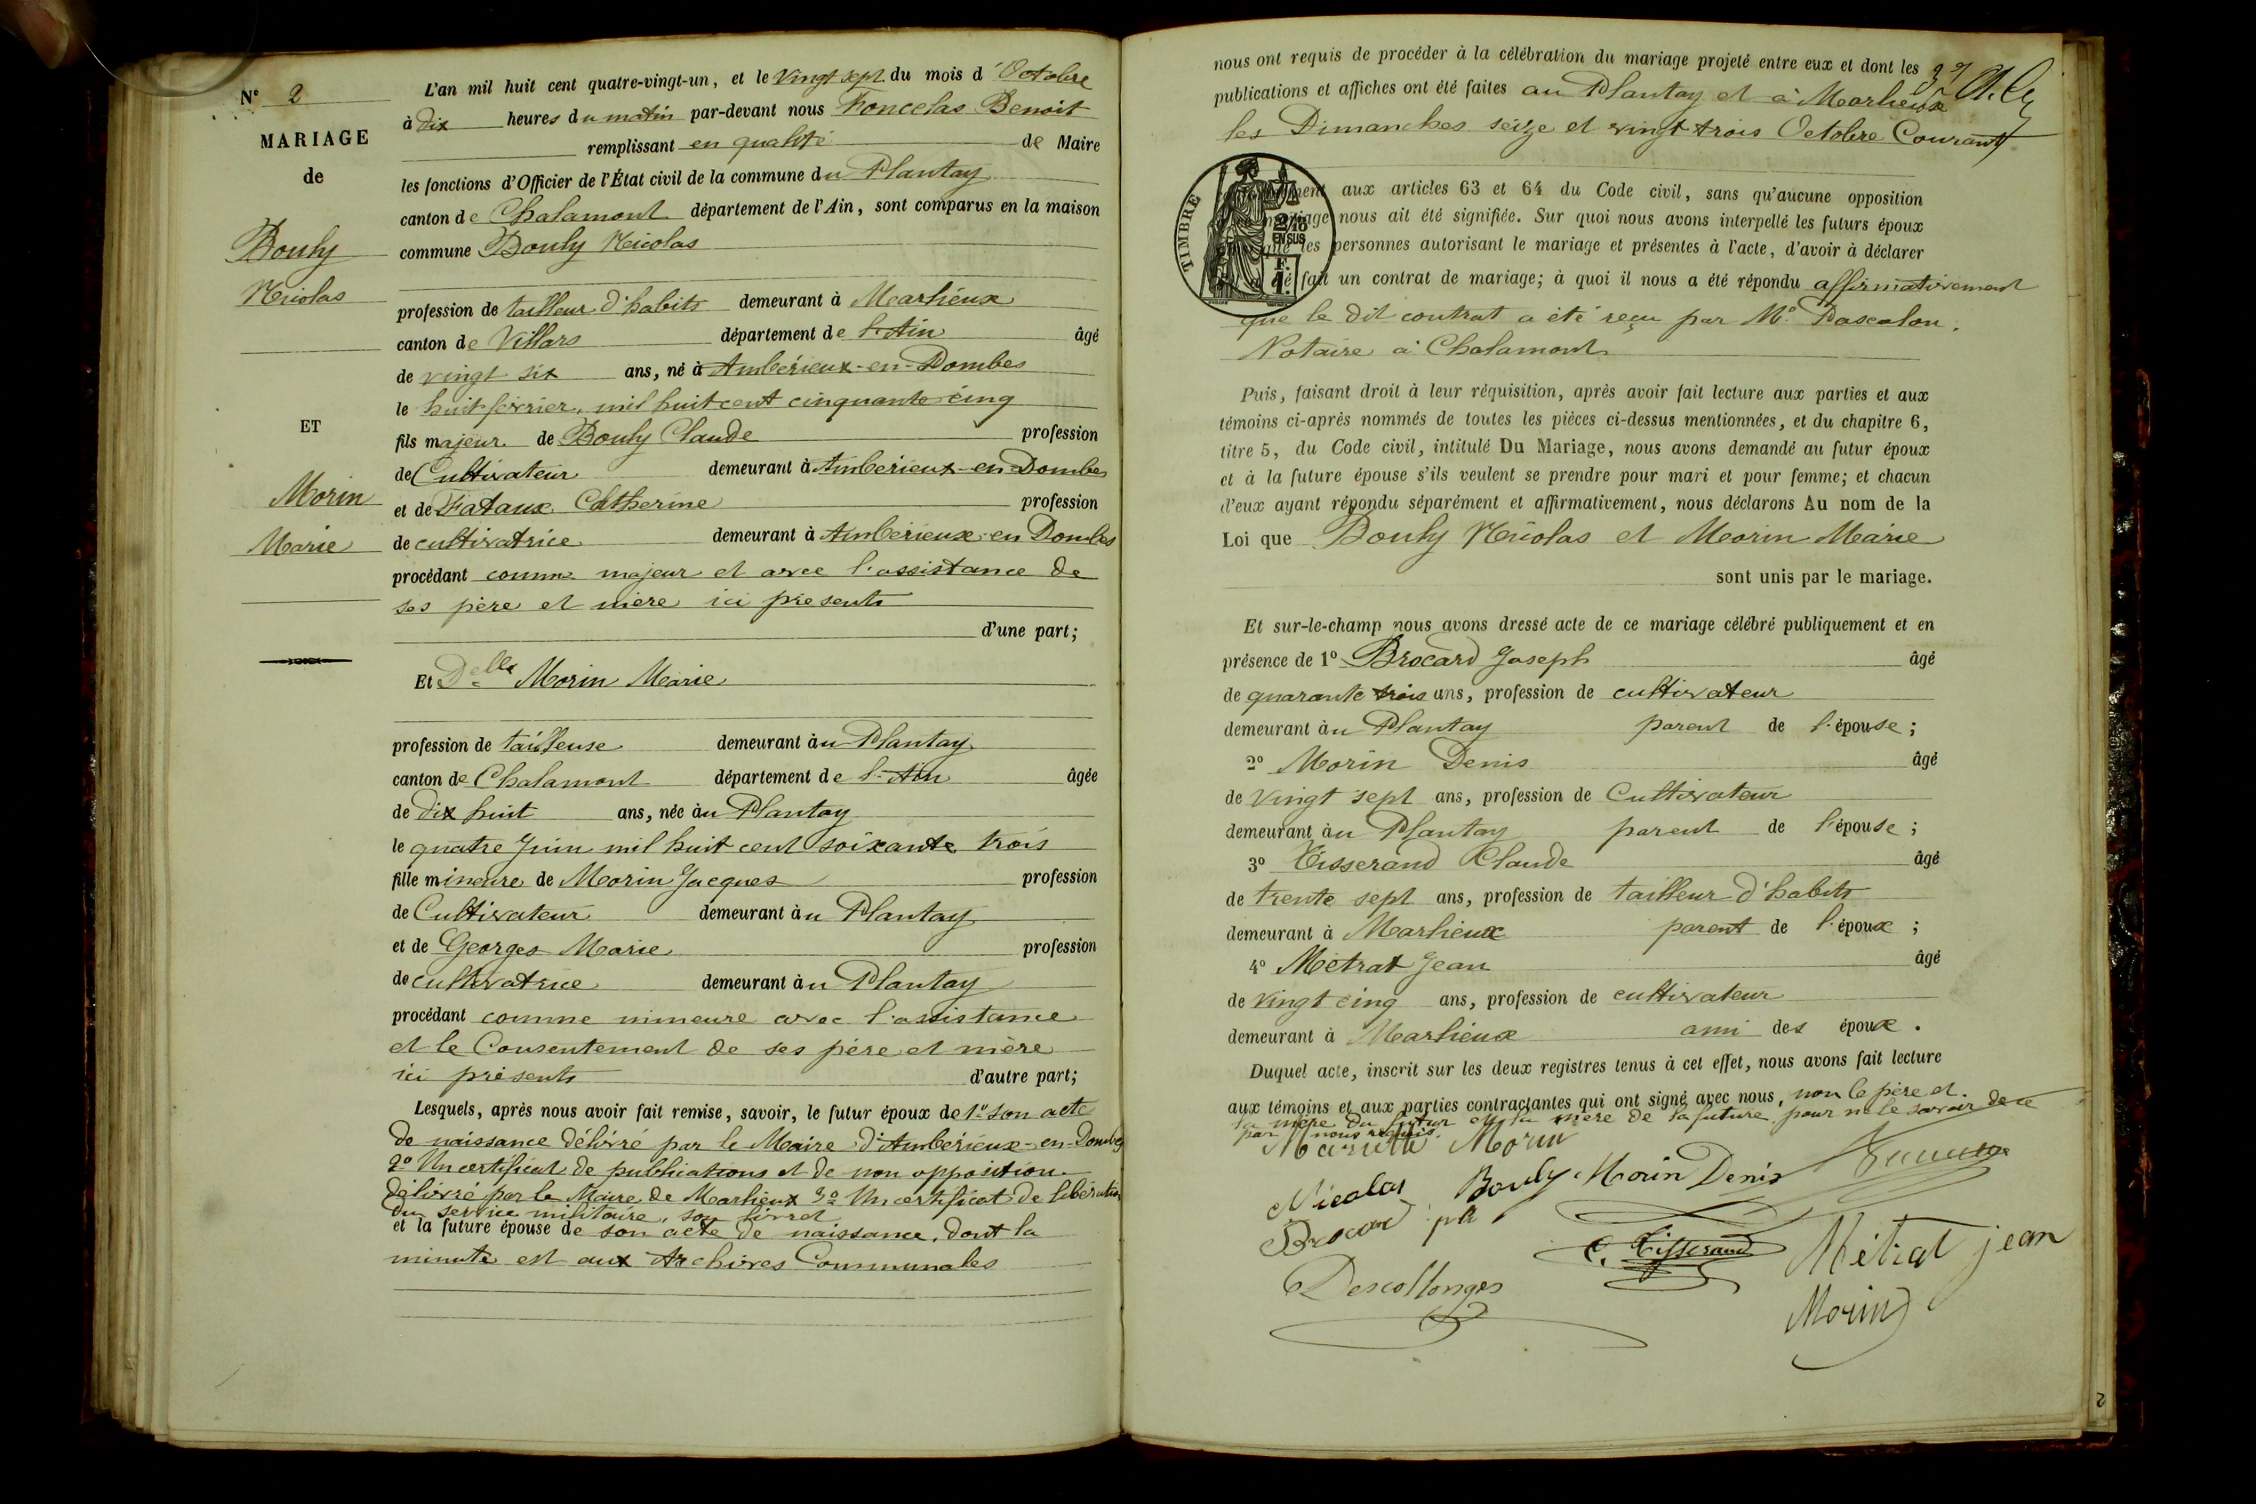 N° 2
MARIAGE
de
Bouly
Nicolas
ET
Morin
Marie
L'an mil huit cent quatre-vingt-un, et le Vingt sept du mois d'Octobre
à dix heures du matin par-devant nous Foncelas Benoit
remplissant en qualité de Maire
les fonctions d'Officier de l'État civil de la commune du Plantay
canton de Chalamont département de l'Ain, sont comparus en la maison
commune Bouly Nicolas
profession de tailleur d'habits demeurant à Marlieux
canton de Villars département de l'Ain âgé
de vingt six ans, né à Ambérieux-en-Dombes
le huit février, mil huit cent cinquante cinq
fils majeur de Bouly Claude profession
de Cultivateur demeurant à Ambérieux-en-Dombes
et de Fataux Catherine profession
de cultivatrice demeurant à Ambérieux-en Dombes
procédant comme majeur et avec l'assistance de
ses père et mère ici présents
d'une part;
Et Delle Morin Marie
profession de tailleuse demeurant au Plantay
canton de Chalamont département de l'Ain âgée
de dix huit ans, née au Plantay
le quatre Juin mil huit cent soixante trois
fille mineure de Morin Jacques profession
de Cultivateur demeurant au Plantay
et de Georges Marie profession
de cultivatrice demeurant au Plantay
procédant comme mineure avec l'assistance
et le Consentement de ses père et mère
ici présents d'autre part;
Lesquels, après nous avoir fait remise, savoir, le futur époux de 1° son acte
de naissance délivré par le Maire d'Ambérieux-en-Dombes
2° Un certificat de publications et de non opposition
délivré par le Maire de Marlieux 3° Un certificat de libération
du service militaire, son livret
et la future épouse de son acte de naissance, dont la
minute est aux Archives Communales
nous ont requis de procéder à la célébration du mariage projeté entre eux et dont les
publications et affiches ont été faites au Plantay et à Marlieux
les Dimanches seize et vingt trois Octobre Courant
TIMBRE
2/10
EN SUS
F.
aux articles 63 et 64 du Code civil, sans qu'aucune opposition
mariage nous ait été signifiée. Sur quoi nous avons interpellé les futurs époux
que les personnes autorisant le mariage et présentes à l'acte, d'avoir à déclarer
été fait un contrat de mariage; à quoi il nous a été répondu affirmativement
que le dit contrat a été reçu par Me Pascalon,
Notaire à Chalamont
Puis, faisant droit à leur réquisition, après avoir fait lecture aux parties et aux
témoins ci-après nommés de toutes les pièces ci-dessus mentionnées, et du chapitre 6,
titre 5, du Code civil, intitulé Du Mariage, nous avons demandé au futur époux
et à la future épouse s'ils veulent se prendre pour mari et pour femme; et chacun
d'eux ayant répondu séparément et affirmativement, nous déclarons Au nom de la
Loi que Bouly Nicolas et Morin Marie
sont unis par le mariage.
Et sur-le-champ nous avons dressé acte de ce mariage célébré publiquement et en
présence de 1° Brocard Joseph âgé
de quarante trois ans, profession de cultivateur
demeurant au Plantay parent de l'épouse;
2° Morin Denis âgé
de Vingt sept ans, profession de Cultivateur
demeurant au Plantay parent de l'épouse;
3° Tisserand Claude âgé
de trente sept ans, profession de tailleur d'habits
demeurant à Marlieux parent de l'époux;
4° Métrat Jean âgé
de Vingt cinq ans, profession de cultivateur
demeurant à Marlieux ami des époux.
Duquel acte, inscrit sur les deux registres tenus à cet effet, nous avons fait lecture
aux témoins et aux parties contractantes qui ont signé avec nous, non le père et
la mère du futur et la mère de la future pour ne le savoir de ce
par nous requis.
Mariette Morin
Nicolas Bouly Morin Denis
Brocard
C. Tisserand Métrat jean
Descollonges
Morin
2